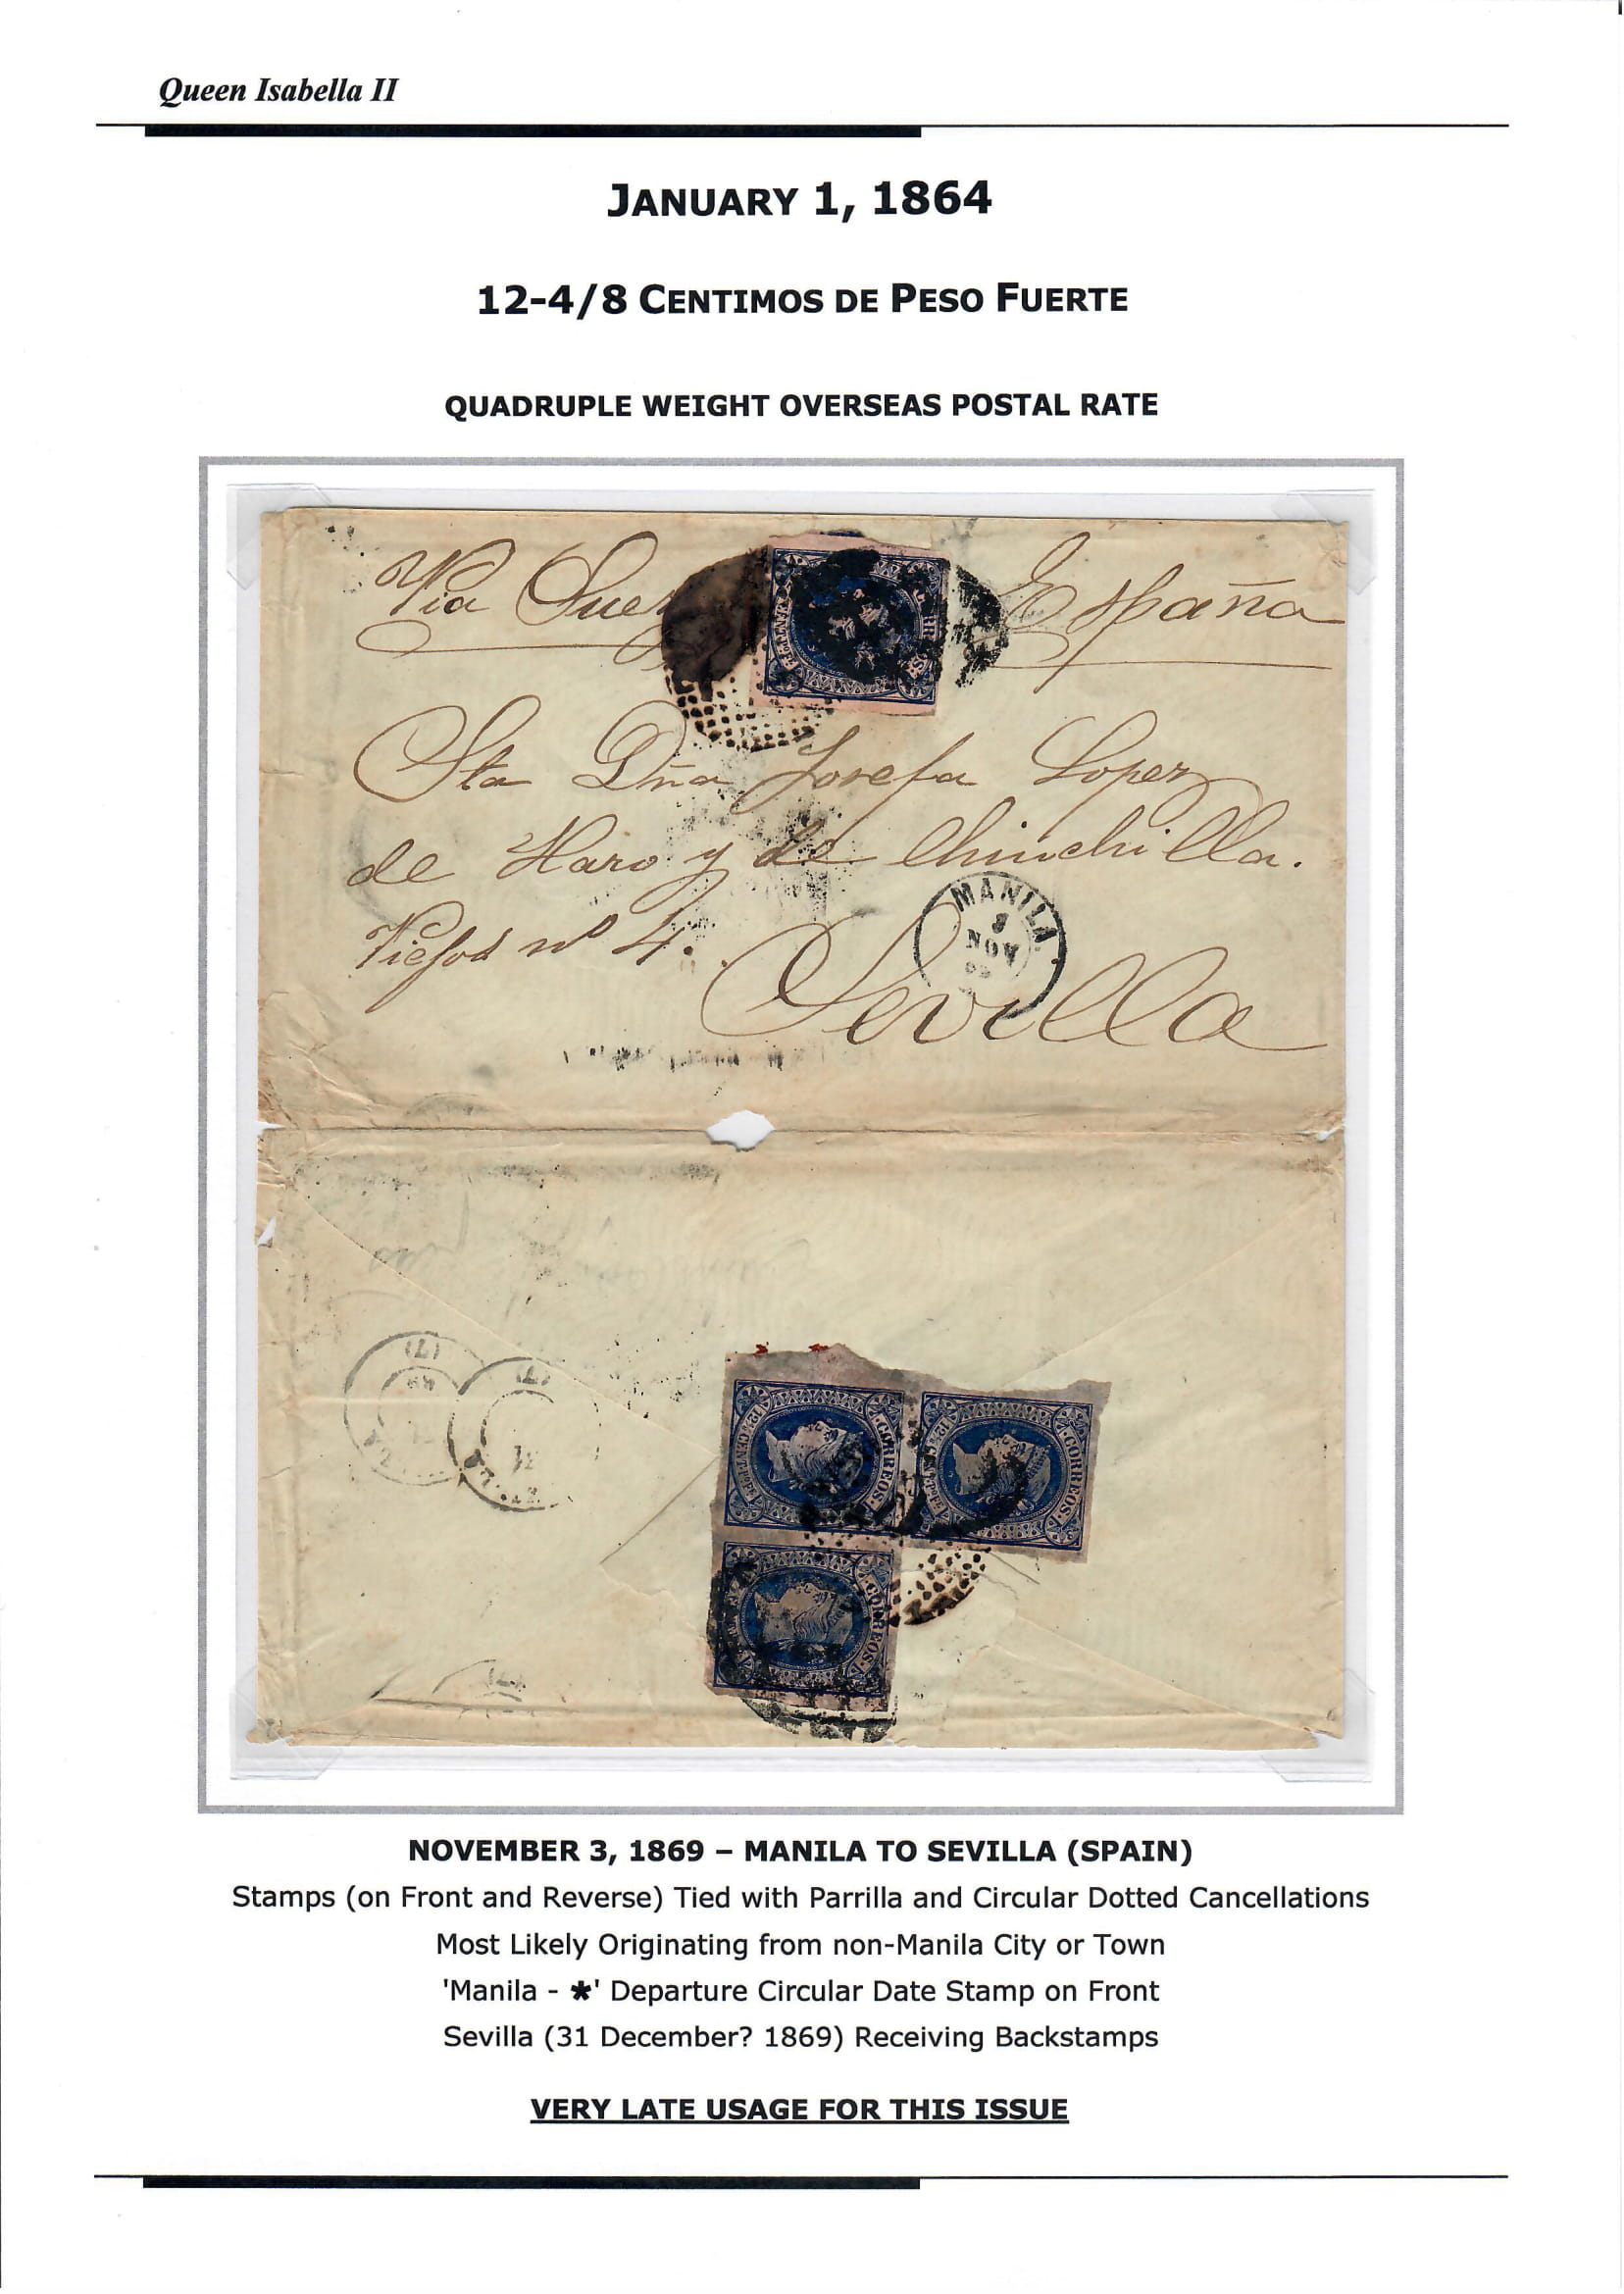 Queen Isabella II
JANUARY 1, 1864
12-4/8 CENTIMOS DE PESO FUERTE
QUADRUPLE WEIGHT OVERSEAS POSTAL RATE
Via Suez España
CORREOS
Sta Dña Josefa Lopez
de Haro y de Chinchilla.
Viejos nº 4.
MANILA
3
NOV
Sevilla
CORREOS
CORREOS
CORREOS
NOVEMBER 3, 1869 – MANILA TO SEVILLA (SPAIN)
Stamps (on Front and Reverse) Tied with Parrilla and Circular Dotted Cancellations
Most Likely Originating from non-Manila City or Town
'Manila - *' Departure Circular Date Stamp on Front
Sevilla (31 December? 1869) Receiving Backstamps
VERY LATE USAGE FOR THIS ISSUE